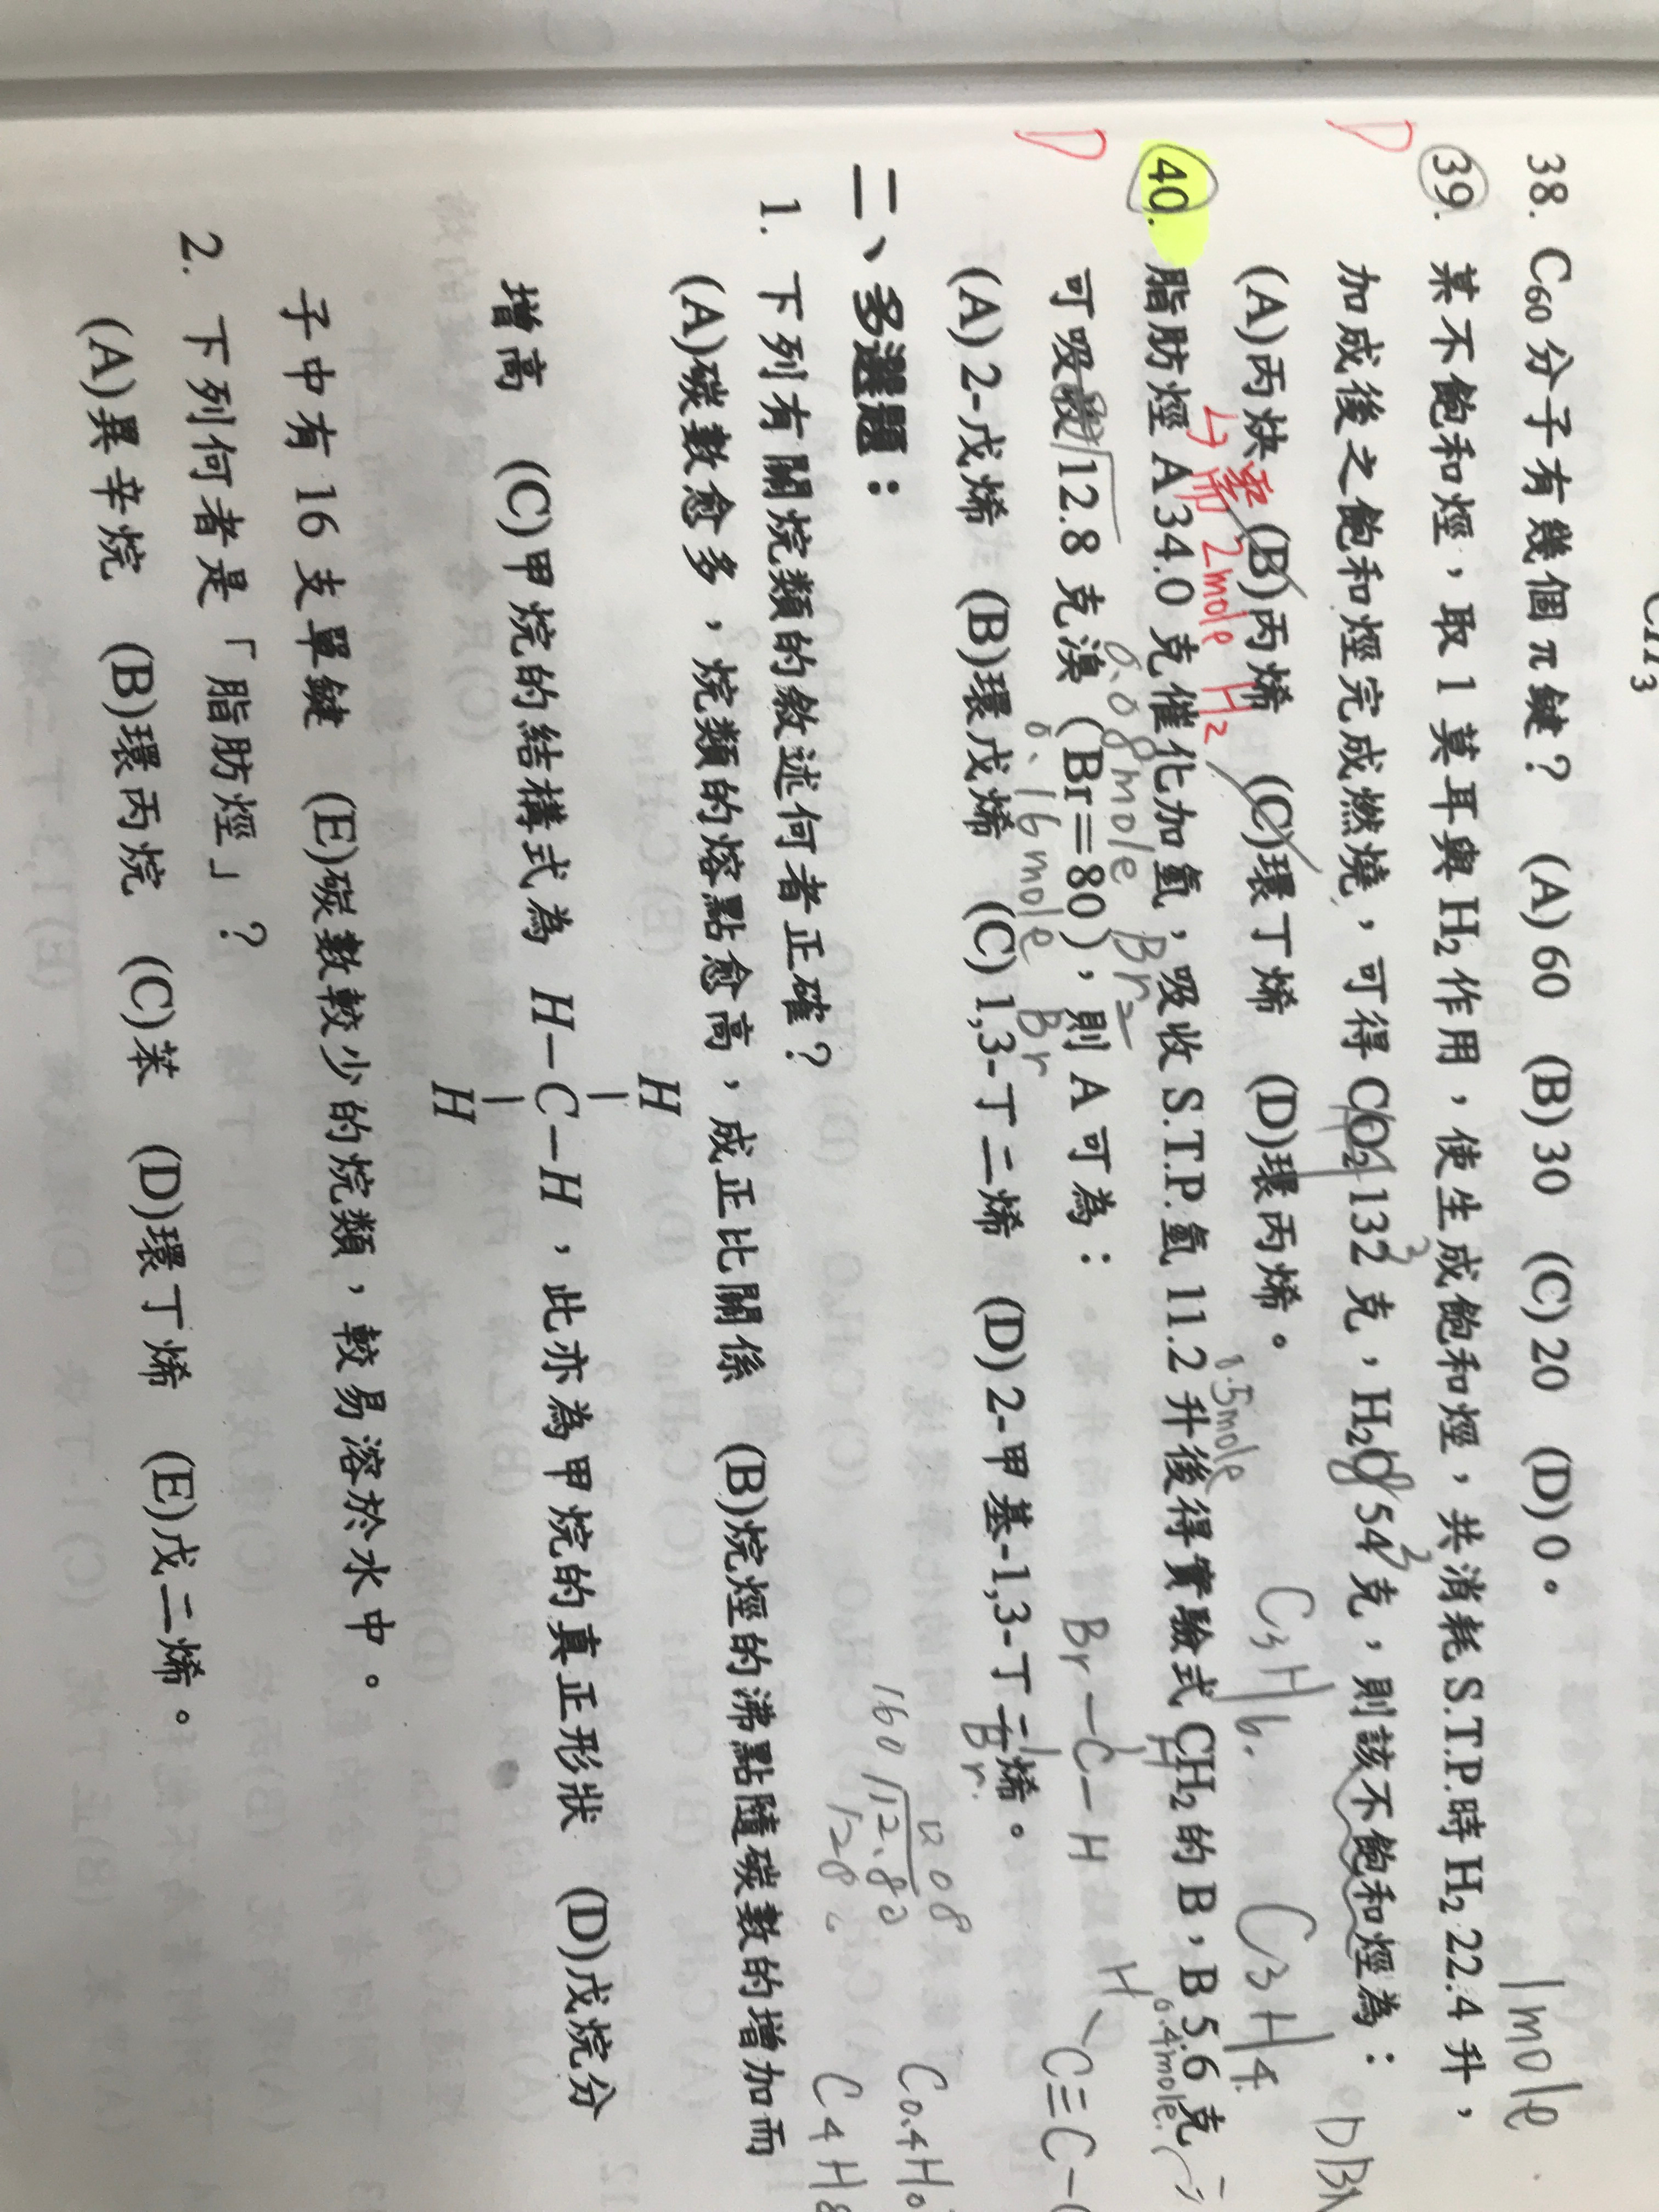 CH3
38. C60 分子有幾個 π 鍵? (A) 60 (B) 30 (C) 20 (D) 0。
1mole
39. 某不飽和烴,取 1 莫耳與 H2 作用,使生成飽和烴,共消耗 S.T.P.時 H2 22.4 升,
加成後之飽和烴完成燃燒,可得 CO2 132 克,H2O 54 克,則該不飽和烴為:
3 3
D
(A)丙炔 (B)丙烯 (C)環丁烯 (D)環丙烯。
C3H6. C3H4.
2mole H2
0.5mole
40. 脂肪烴 A 34.0 克催化加氫,吸收 S.T.P.氫 11.2 升後得實驗式 CH2 的 B,B 5.6 克
0.08mole Br2
0.4mole.
可吸 12.8 克溴(Br=80),則 A 可為:
0.16mole Br
D
Br—C—H
H
Br.
H
C≡C
(A) 2-戊烯 (B)環戊烯 (C) 1,3-丁二烯 (D) 2-甲基-1,3-丁二烯。
0.08
160 12.80
C0.4H0
C4H8
二、多選題:
1. 下列有關烷類的敘述何者正確?
(A)碳數愈多,烷類的熔點愈高,成正比關係 (B)烷烴的沸點隨碳數的增加而
H
增高 (C)甲烷的結構式為 H—C—H,此亦為甲烷的真正形狀 (D)戊烷分
H
子中有 16 支單鍵 (E)碳數較少的烷類,較易溶於水中。
2. 下列何者是「脂肪烴」?
(A)異辛烷 (B)環丙烷 (C)苯 (D)環丁烯 (E)戊二烯。